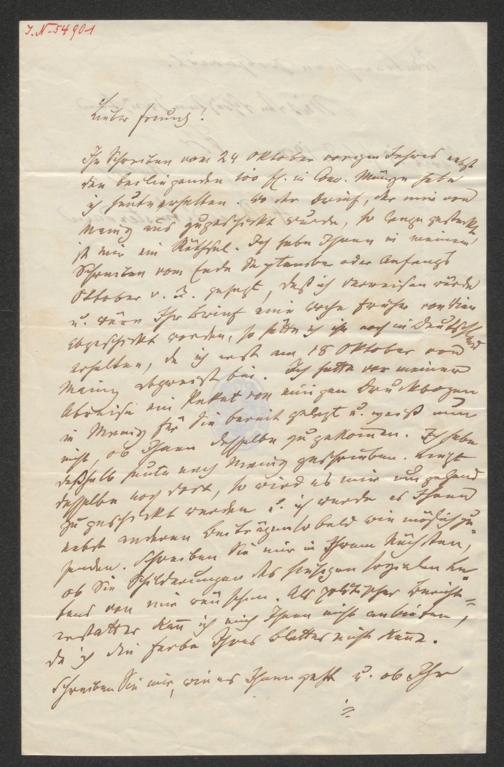 I.N. 54901
Lieber Freund!
Ihr Schreiben vom 24 Oktober vorigen Jahres nebst
den beiliegenden 100 fl. in Conv. Münze habe
ich heute erhalten. Wo der Brief, der mir von
Mainz aus zugeschickt wurde, so lange gesteckt
ist mir ein Räthsel. Ich habe Ihnen in meinem
Schreiben vom Ende September oder Anfangs
Oktober v. J. gesagt, daß ich verreisen würde
u. wäre Ihr Brief eine Woche früher von Wien
abgeschickt worden, so hätte ich ihn noch in Deutschland
erhalten, da ich erst am 18 Oktober von
Mainz abgereist bin. Ich hatte vor meiner
Abreise ein Paket von einigen Druckbogen
in Mainz für Sie bereit gelegt u. weiß nun
nicht, ob Ihnen dasselbe zugekommen. Ich habe
deßhalb heute nach Mainz geschrieben. Liegt
dasselbe noch dort, so wird es mir umgehend
zugeschickt werden u. ich werde es Ihnen
nebst anderen Beiträgen sobald wie möglich zu-
senden. Schreiben Sie mir in Ihrem Nächsten,
ob Sie Schilderungen des hiesigen sozialen Le-
bens von mir wünschen. Als politischer Bericht-
erstatter kann ich mich Ihnen nicht anbieten,
da ich die Farbe Ihres Blattes nicht kenne.
Schreiben Sie mir, wie es Ihnen geht u. ob Ihr